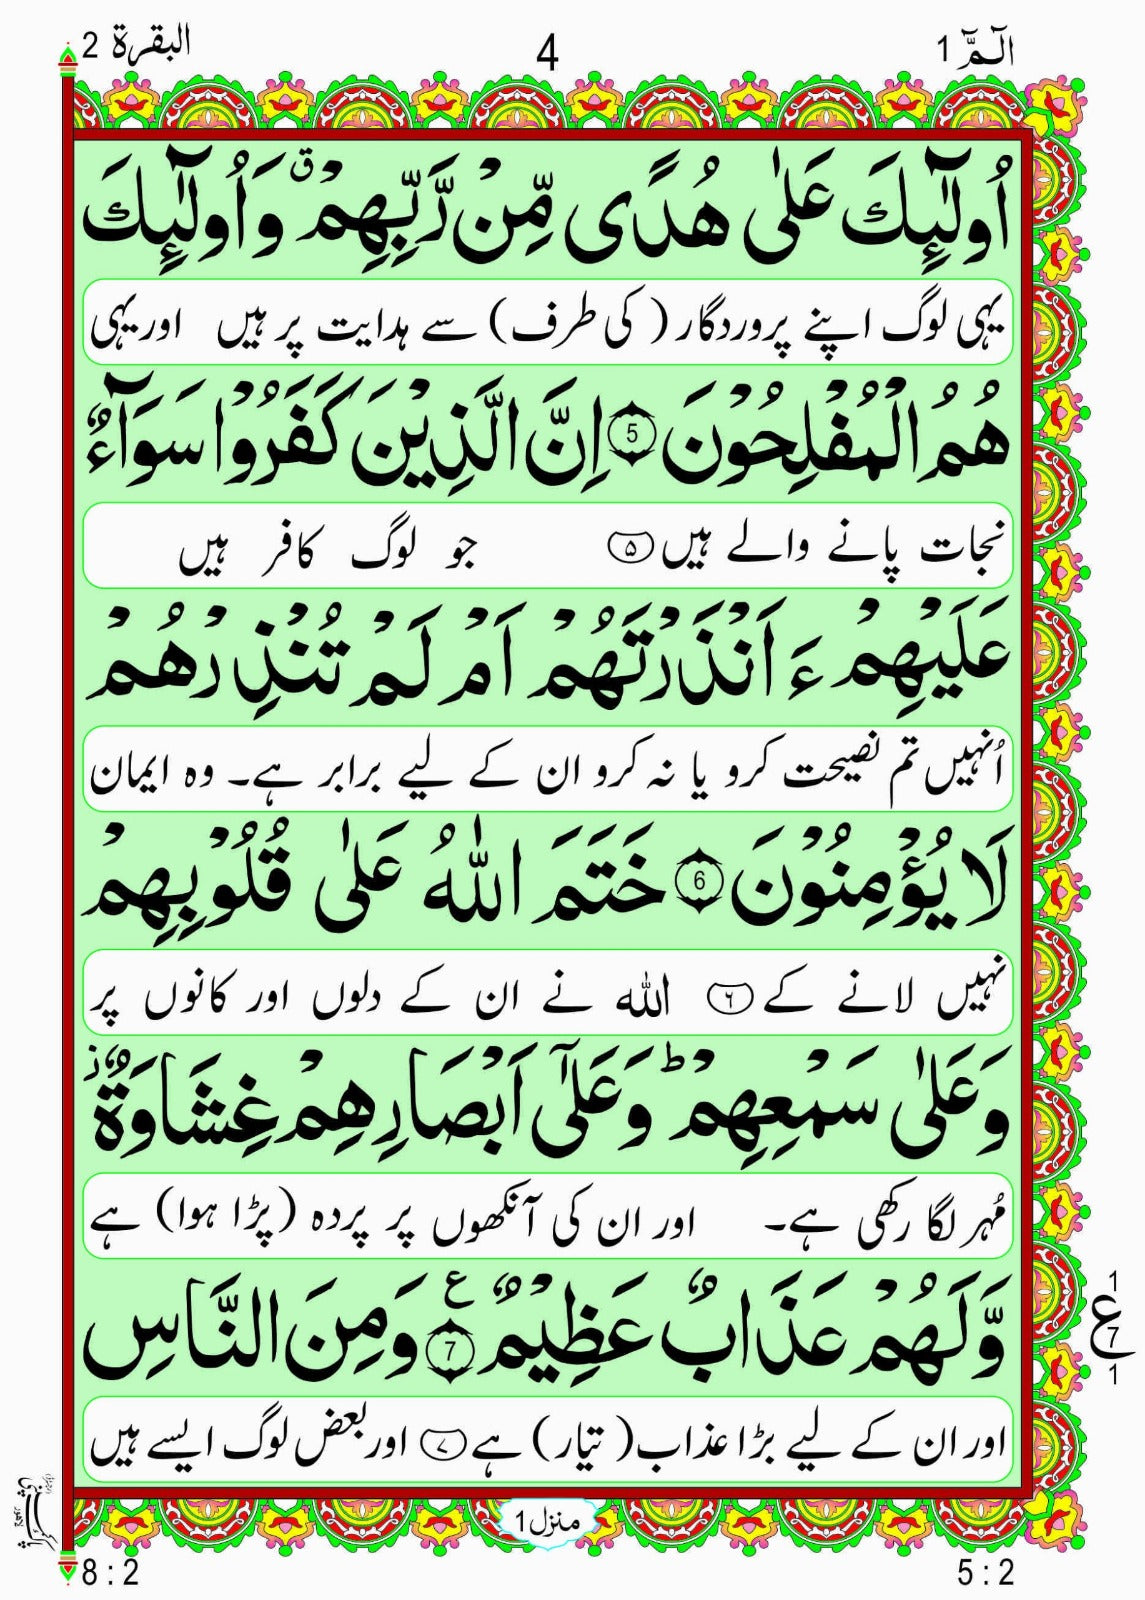 الٓمّٓ 1
4
البقرة 2
اُولٰٓئِكَ عَلٰى هُدًى مِّنْ رَّبِّهِمْ ۗ وَاُولٰٓئِكَ
یہی لوگ اپنے پروردگار (کی طرف) سے ہدایت پر ہیں اور یہی
هُمُ الْمُفْلِحُوْنَ 5 اِنَّ الَّذِيْنَ كَفَرُوْا سَوَآءٌ
نجات پانے والے ہیں ۵ جو لوگ کافر ہیں
عَلَيْهِمْ ءَاَنْذَرْتَهُمْ اَمْ لَمْ تُنْذِرْهُمْ
اُنہیں تم نصیحت کرو یا نہ کرو ان کے لیے برابر ہے۔ وہ ایمان
لَا يُؤْمِنُوْنَ 6 خَتَمَ اللّٰهُ عَلٰى قُلُوْبِهِمْ
نہیں لانے کے ۶ اللہ نے ان کے دلوں اور کانوں پر
وَعَلٰى سَمْعِهِمْ ؕ وَعَلٰٓى اَبْصَارِهِمْ غِشَاوَةٌ ز
مُہر لگا رکھی ہے۔ اور ان کی آنکھوں پر پردہ (پڑا ہوا) ہے
وَّلَهُمْ عَذَابٌ عَظِيْمٌ 7 ع وَمِنَ النَّاسِ
اور ان کے لیے بڑا عذاب (تیار) ہے ۷ اور بعض لوگ ایسے ہیں
1
ع 7
1
منزل 1
5 : 2
8 : 2